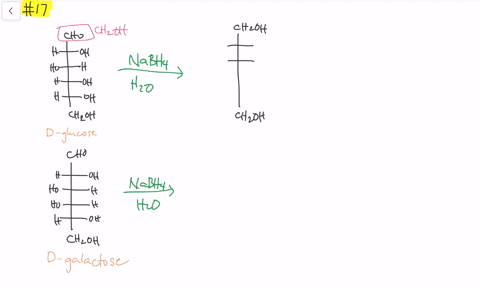 #17
CHO CH2OH
H OH
HO H
H OH
H OH
CH2OH
D-glucose
NaBH4
H2O
CH2OH
CH2OH
CHO
H OH
HO H
HO H
H OH
CH2OH
D-galactose
NaBH4
H2O